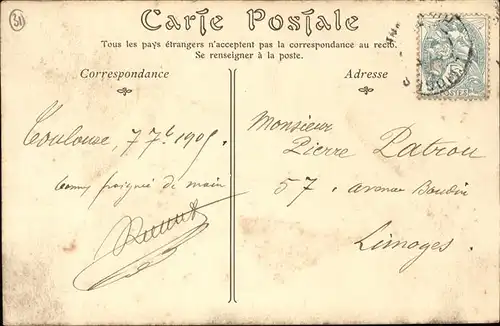 31
Carte Postale
Tous les pays étrangers n'acceptent pas la correspondance au recto.
Se renseigner à la poste.
Correspondance
Adresse
POSTES
Toulouse, 7 7bre 1905
poignée de main
Monsieur
Pierre Patrou
57, avenue Baudin
Limoges.